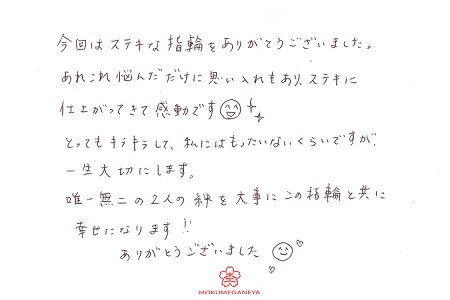 今回はステキな指輪をありがとうございました。
あれこれ悩んだだけに思い入れもあり、ステキに
仕上がってきて感動です
とってもキラキラして、私にはもったいないくらいですが、
一生大切にします。
唯一無二の2人の絆を大事にこの指輪と共に
幸せになります!!
ありがとうございました
MOKUMEGANEYA